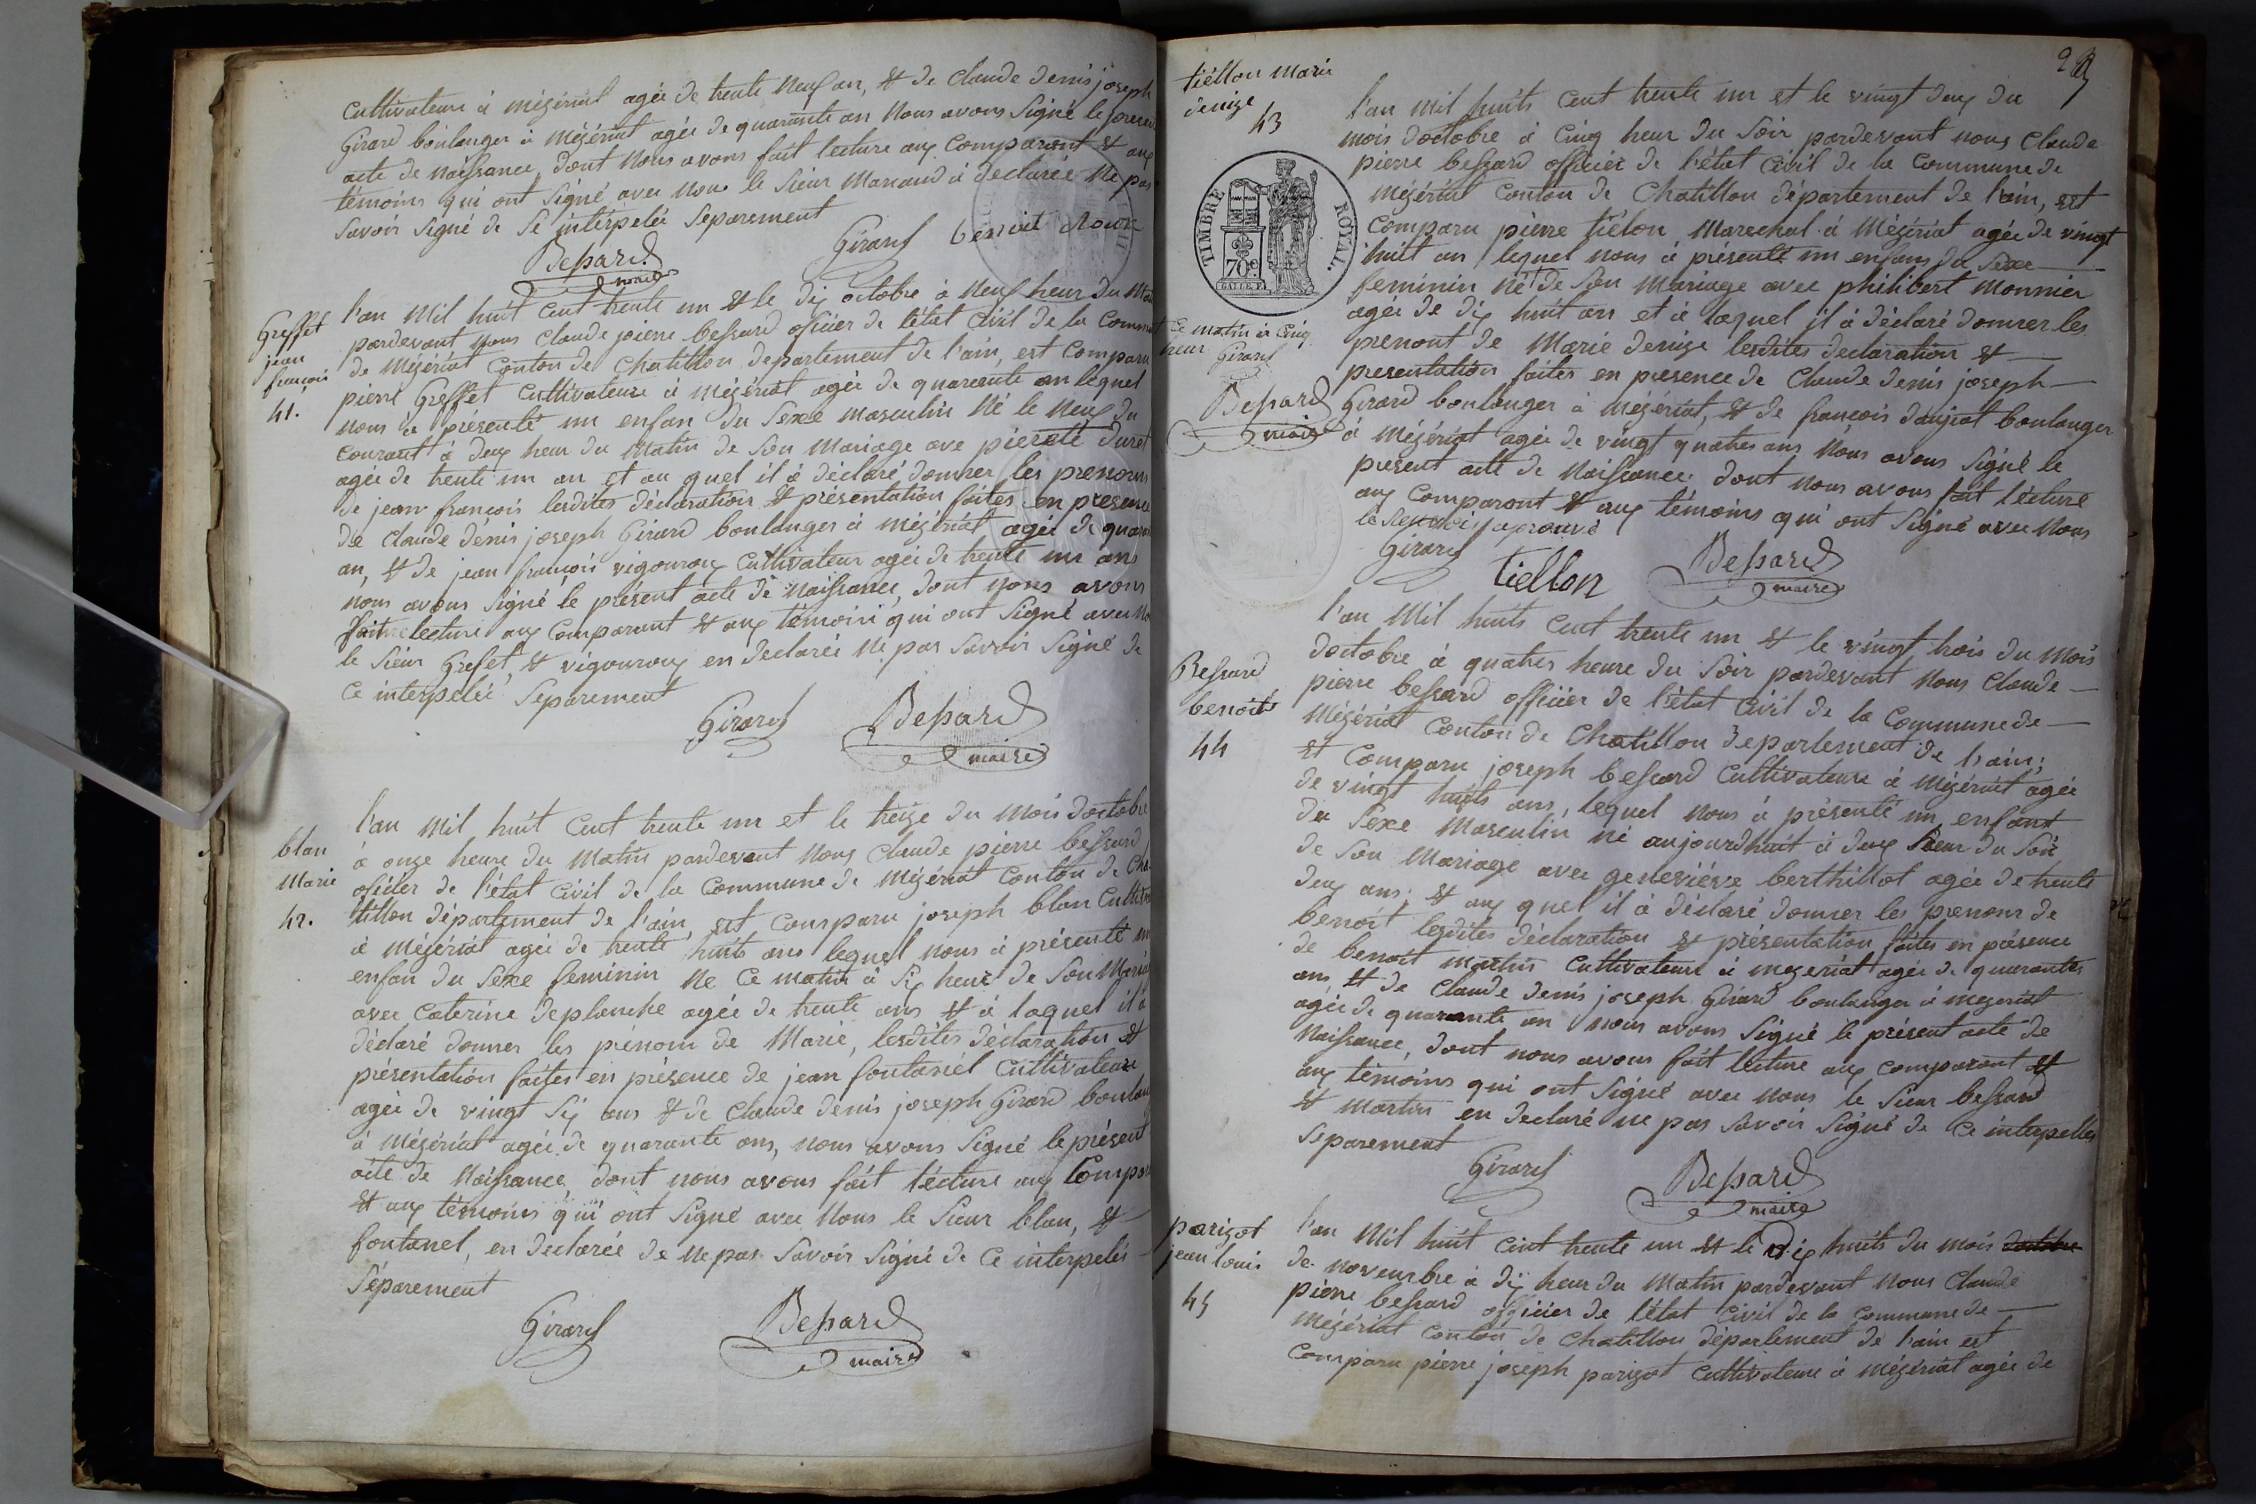 cultivateure à mézériat agée de trente neuf an, & de claude denis joseph
Girard boulanger à mézériat agée de quarante an nous avons signé le présent
acte de naissance, dont nous avons fait lecture aux comparant & aux
témoins qui ont signé avec nous le sieur Marcaud à declarée ne pas
savoir signé de se intérpelée separement
Bessard
maire
Girard
benoit Roux
Greffet
jean
françois
41.
l'an mil huit cent trente un & le dix octobre à neuf heur du mat
pardevant nous claude pierre bessard oficier de l'état civil de la commune
de mézériat conton de chatillon departement de l'ain, est comparu
pierre Greffet cultivateure à mézériat agée de quarante an lequel
nous à présenté un enfan du sexe masculin né le neuf du
courant à deux heur du matin de son mariage ave pierrette duret
agée de trente un an et au quel il à déclaré donner les prenoms
de jean françois lesdites déclaration & présentation faites en présence
de claude dénis joseph Girard boulanger à mézériat agée de quarante
an, & de jean françois vigouroux cultivateur agée de trente un ans
nous avons signé le présent acte de naissance, dont nous avons
faite lecture aux comparant & aux témoins qui ont signé avec nou
le sieur Grefet, & vigouroux en declarée ne pas savoir signé de
ce interpelée separement
Girard
Bessard
maire
blan
Marie
42.
l'an mil huit cent trente un et le treize du mois doctobre
à onze heure du matin pardevant nous claude pierre bessard
oficier de l'état civil de la commune de mézériat conton de cha
tillon département de l'ain, est comparu joseph blan cultiv
à mézériat agée de trente huits ans lequel nous à présenté un
enfan du sexe feminin né ce matin à six heur de son mariag
avec caterine deplanche agée de trente ans & à laquel il à
déclaré donner les prénom de Marie, lesdites déclaration &
présentation faites en présence de jean fontanel cultivateure
agée de vingt six ans & de claude denis joseph Girard boulang
à mézériat agée de quarante ans, nous avons signé le présent
acte de naissance dont nous avons fait lécture aux compar
& aux témoins qui ont signé avec nous le sieur blan, &
fontanel, en declarée de ne pas savoir signé de ce intérpelés
séparement
Girard
Bessard
maire
tiéllon marie
denize
43
TIMBRE ROYAL.
70c
ce matin à cinq
heur
Girard
Bessard
maire
l'an mil huits cent trente un et le vingt deux du
mois doctobre à cinq heur du soir pardevant nous claude
pierre bessard officier de l'état civil de la commune de
mézériat conton de chatillon département de l'ain, est
comparu pierre tiélon marechal à mézériat agée de vingt
huit an lequel nous à présenté un enfans du sexe
feminin né de son mariage avec philibert monnier
agée de dix huit an et à laquel jl à déclaré donner les
prenont de Marie denize lesdites declaration &
presentation faites en presence de claude denis joseph
Girard boulanger à mézériat, & de françois daujat boulanger
à mézériat agée de vingt quatres ans nous avons signé le
present acte de naissance dont nous avons fait lécture
aux comparant & aux témoins qui ont signé avec nous
le renvoie aprouvé
Girard
tiellon
Bessard
maire
2
Bessard
benoit
44
l'an mil huits cent trente un & le vingt trois du mois
doctobre à quatres heure du soir pardevant nous claude
pierre bessard officier de l'état civil de la commune de
mézériat conton de chatillon departement de l'ain,
et comparu joseph bessard cultivateure à mézériat agée
de vingt huits ans, lequel nous à présenté un enfant
du sexe masculin né aujourdhuit à deux heur du soir
de son mariage avec geneviéve berthillot agée de trente
deux ans; & aux quel il à déclaré donner les prenom de
benoit lesdites déclaration & présentation faites en présence
de benoit martin cultivateure à mezeriat agée de quarantes
ans, & de claude denis joseph Girard boulanger à mezeriat
agée de quarante an nous avons signé le présent acte de
naissance, dont nous avons fait lecture aux comparant &
aux témoins qui ont signé avec nous le sieur bessard
& martin en declaré ne pas savoir signé de ce interpellés
separement
Girard
Bessard
maire
parizot
jean louis
45
l'an mil huit cent trente un & le dix huits du mois doctobre
de novembre à dix heur du matin pardevant nous claude
pierre bessard officier de l'état civil de la commune de
mézériat conton de chatillon département de l'ain est
comparu pierre joseph parizot cultivateure à mézériat agée de